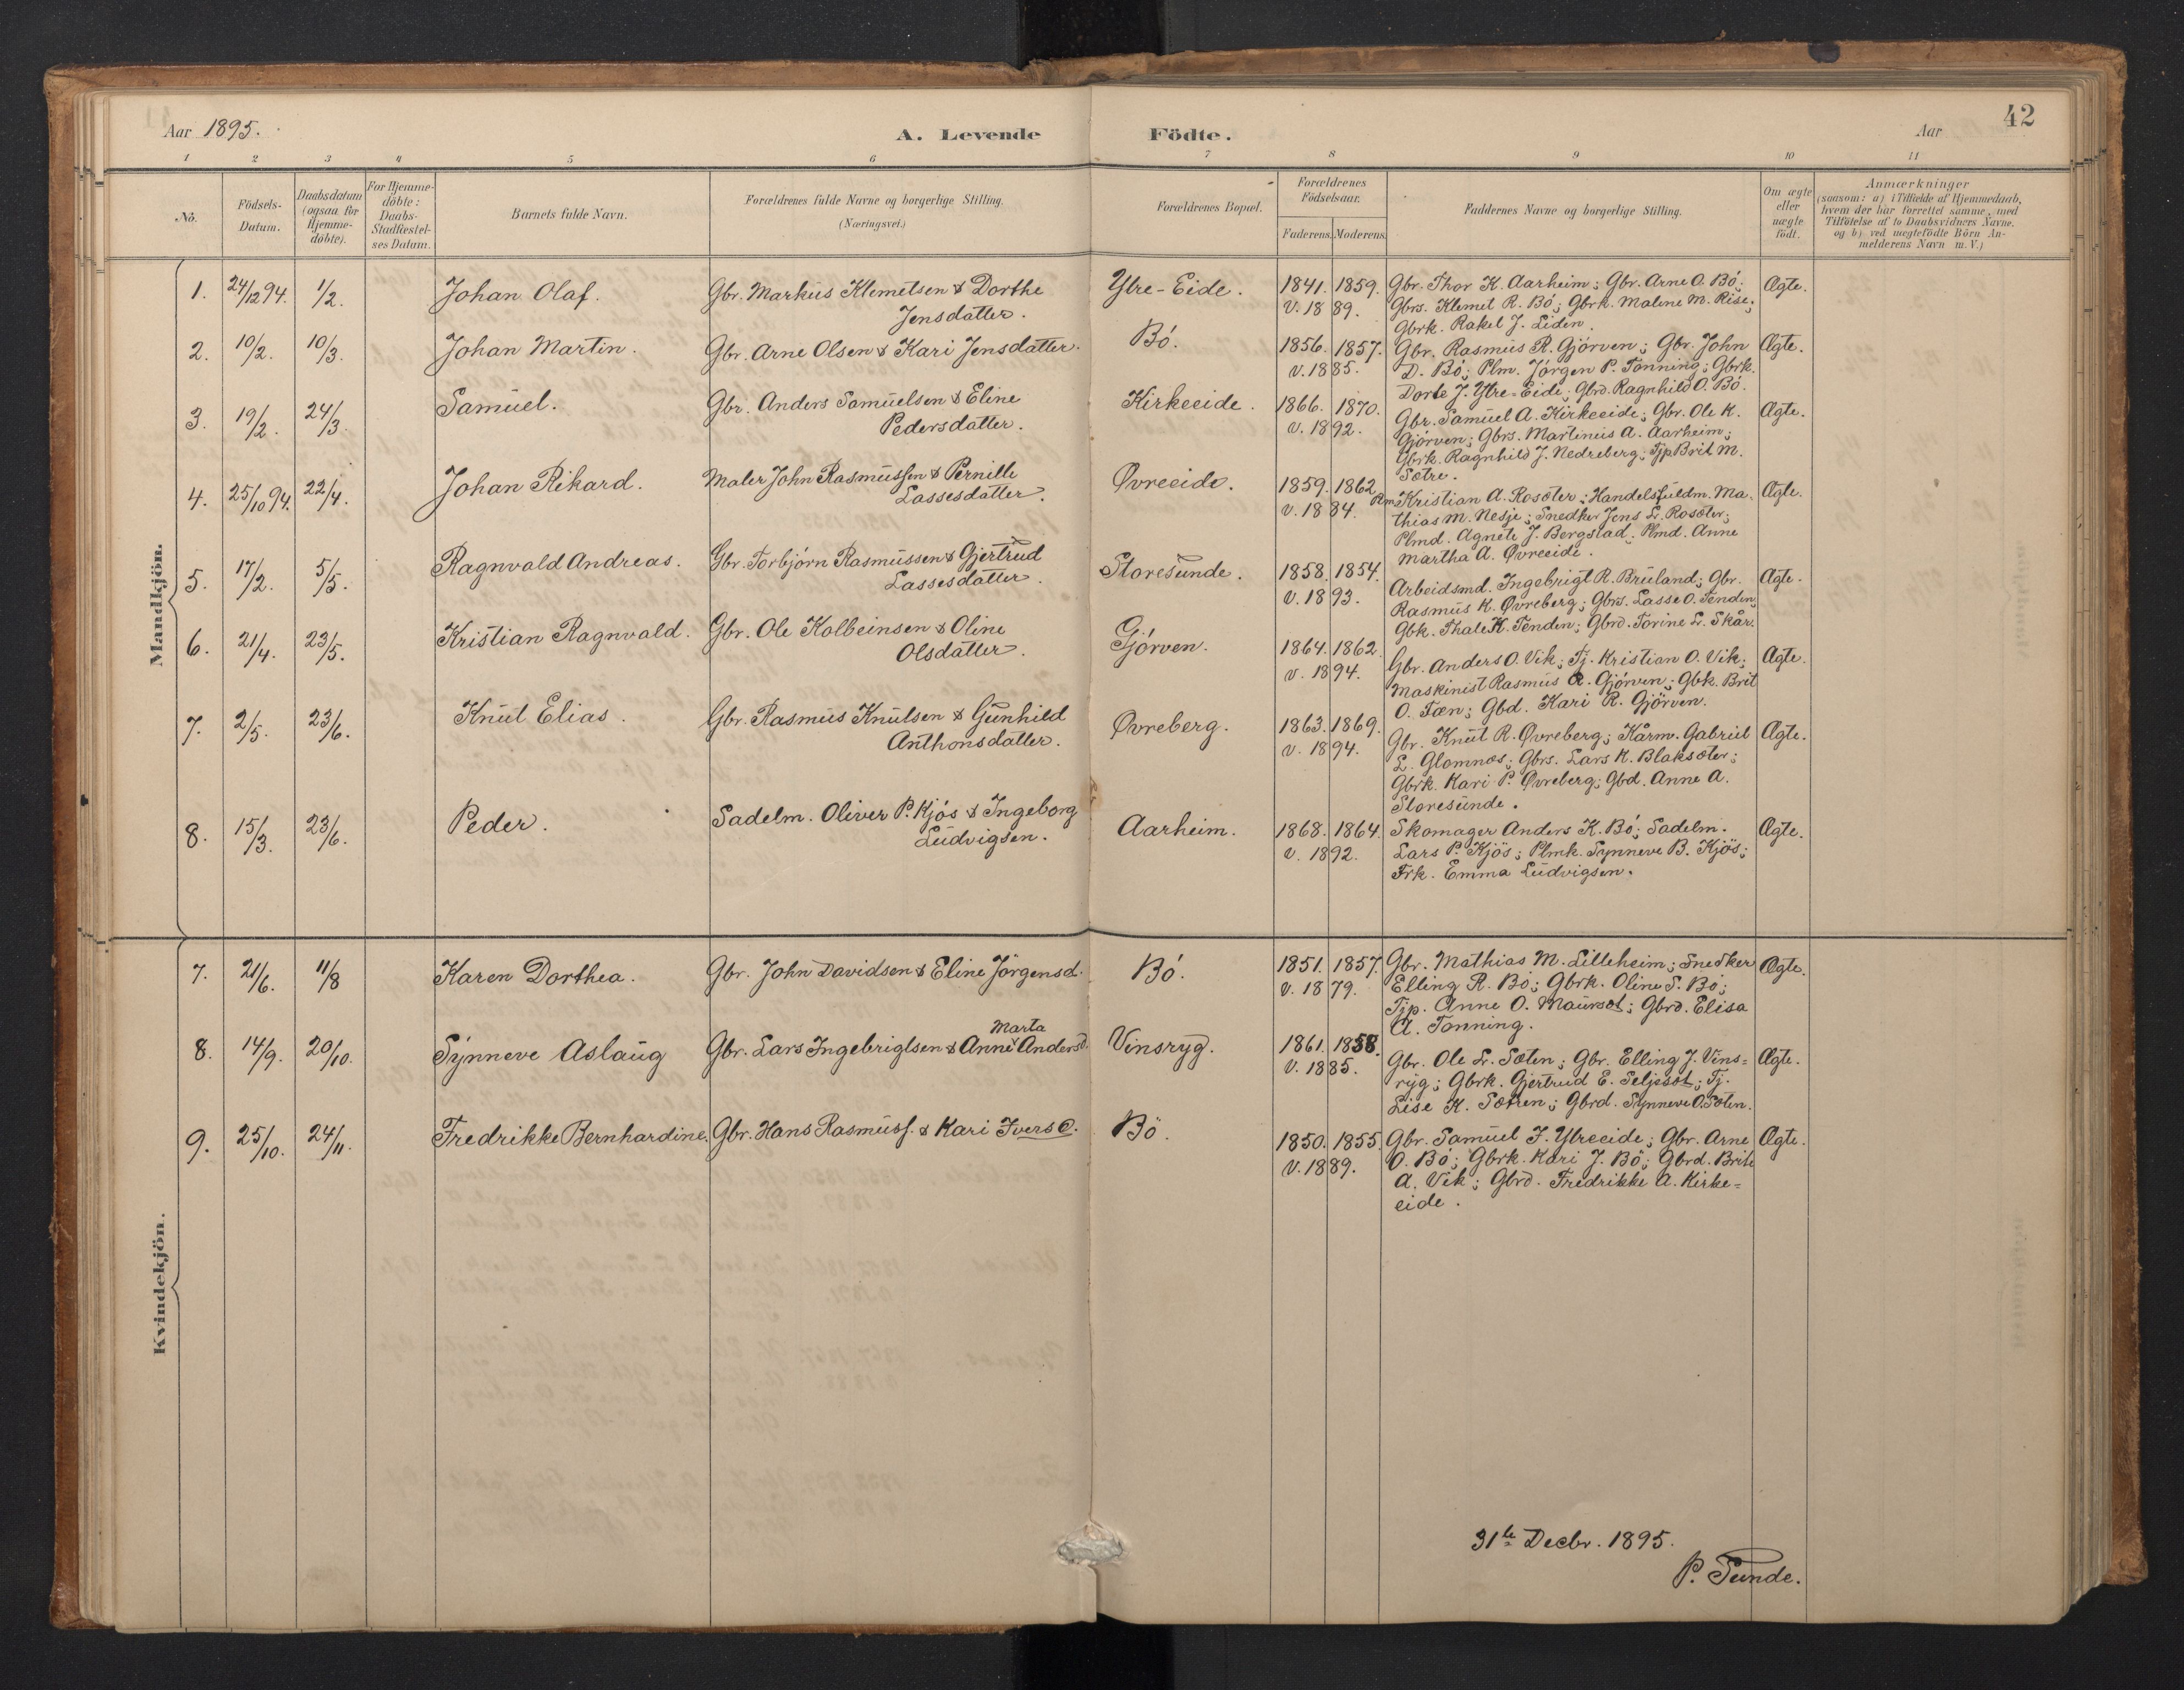 Aar 1895.
A. Levende Födte.
Aar
42
1 2 3 4 5 6 7 8 9 10 11
No.
Födsels-
Datum.
Daabsdatum
(ogsaa for
Hjemme-
döbte).
For Hjemme-
döbte:
Daabs-
Stadfæstel-
ses Datum.
Barnets fulde Navn.
Forældrenes fulde Navne og borgerlige Stilling.
(Næringsvei.)
Forældrenes Bopæl.
Forældrenes
Födselsaar.
Faderens. Moderens.
Faddernes Navne og borgerlige Stilling.
Om ægte
eller
uægte
födt.
Anmærkninger
(saasom: a) i Tilfælde af Hjemmedaab,
hvem der har forrettet samme, med
Tilföielse af to Daabsvidners Navne.
og b) ved uægtefödte Börn An-
melderens Navn m. V.)
Mandkjön.
1. 24/12 94. 1/2. Johan Olaf. Gbr. Markus Klemetsen & Dorthe
Jensdatter.
Ytre-Eide. 1841. 1859.
v. 1889.
Gbr. Thor K. Aarheim; Gbr. Arne O. Bö;
Gbrs. Klemet R. Bö; Gbrk. Malene M. Rise;
Gbrk. Rakel J. Liden.
Ægte.
2. 10/2. 10/3. Johan Martin. Gbr. Arne Olsen & Kari Jensdatter.
Bö. 1856. 1857.
v. 1885.
Gbr. Rasmus R. Gjörven; Gbr. John
D. Bö; Plm. Jörgen P. Tonning; Gbrk.
Dorte J. Ytre-Eide; Gbrd. Ragnhild O. Bö.
Ægte.
3. 19/2. 24/3. Samuel. Gbr. Anders Samuelsen & Eline
Pedersdatter.
Kirkeeide. 1866. 1870.
v. 1892.
Gbr. Samuel A. Kirkeeide; Gbr. Ole K.
Gjörven; Gbrs. Martinus A. Aarheim;
Gbrk. Ragnhild J. Nedreberg; Tjp Brit M.
Sætre.
Ægte.
4. 25/10 94. 22/4. Johan Rikard. Maler John Rasmussen & Pernille
Lassesdatter.
Øvreeide. 1859. 1862.
v. 1884.
Plm. Kristian A. Rosæter; Handelsfuldm. Ma-
thias M. Nesje; Snedker Jens L. Rosæter;
Plmd. Agnete J. Bergstad; Plmd. Anne
Martha A. Øvreeide.
Ægte.
5. 17/2. 5/5. Ragnvald Andreas. Gbr. Torbjörn Rasmussen & Gjertrud
Lassesdatter.
Storesunde. 1858. 1854.
v. 1893.
Arbeidsmd. Ingebrigt R. Bruland; Gbr.
Rasmus K. Øvreberg; Gbrs. Lasse O. Tenden;
Gbk. Thale K. Tenden; Gbrd. Torine L. Skår.
Ægte.
6. 21/4. 23/5. Kristian Ragnvald. Gbr. Ole Kolbeinsen & Oline
Olsdatter.
Gjörven. 1864. 1862.
v. 1894.
Gbr. Anders O. Vik; Tj. Kristian O. Vik;
Maskinist Rasmus R. Gjörven; Gbk. Brit
O. Tæn; Gbd. Kari R. Gjörven.
Ægte.
7. 2/5. 23/6. Knut Elias. Gbr. Rasmus Knutsen & Gunhild
Anthonsdatter.
Øvreberg. 1863. 1869.
v. 1894.
Gbr. Knut R. Øvreberg; Kårm. Gabriel
L. Glomnæs; Gbrs. Lars K. Blaksæter;
Gbrk. Kari P. Øvreberg; Gbd. Anne A.
Storesunde.
Ægte.
8. 15/3. 23/6. Peder. Sadelm. Oliver P. Kjös & Ingeborg
Ludvigsen.
Aarheim. 1868. 1864.
v. 1892.
Skomager Anders K. Bö; Sadelm.
Lars P. Kjös; Plmk. Synneve B. Kjös;
Frk. Emma Ludvigsen.
Ægte.
Kvindekjön.
7. 21/6. 11/8 Karen Dorthea. Gbr. John Davidsen & Eline Jörgensd.
Bö. 1851. 1857.
v. 1879.
Gbr. Mathias M. Lilleheim; Snedker
Elling R. Bö; Gbrk. Oline S. Bö;
Tjp. Anne O. Maurset; Gbrd. Elisa
A. Tonning.
Ægte.
8. 14/9. 20/10. Synneve Aslaug Gbr. Lars Ingebrigtsen & Anne Marta Andersd.
Vinsryg. 1861. 1858.
v. 1885.
Gbr. Ole L. Sæten; Gbr. Elling J. Vins-
ryg; Gbrk. Gjertrud E. Seljeset; Tj.
Lise K. Sætren; Gbrd. Synneve O. Sæten.
Ægte.
9. 25/10. 24/11. Fredrikke Bernhardine. Gbr. Hans Rasmuss. & Kari Iversd.
Bö. 1850. 1855.
v. 1889.
Gbr. Samuel J. Ytreeide; Gbr. Arne
O. Bö; Gbrk. Kari J. Bö; Gbrd. Brite
A. Vik; Gbrd. Fredrikke A. Kirke-
eide.
Ægte.
31te Decbr. 1895.
P. Sunde.